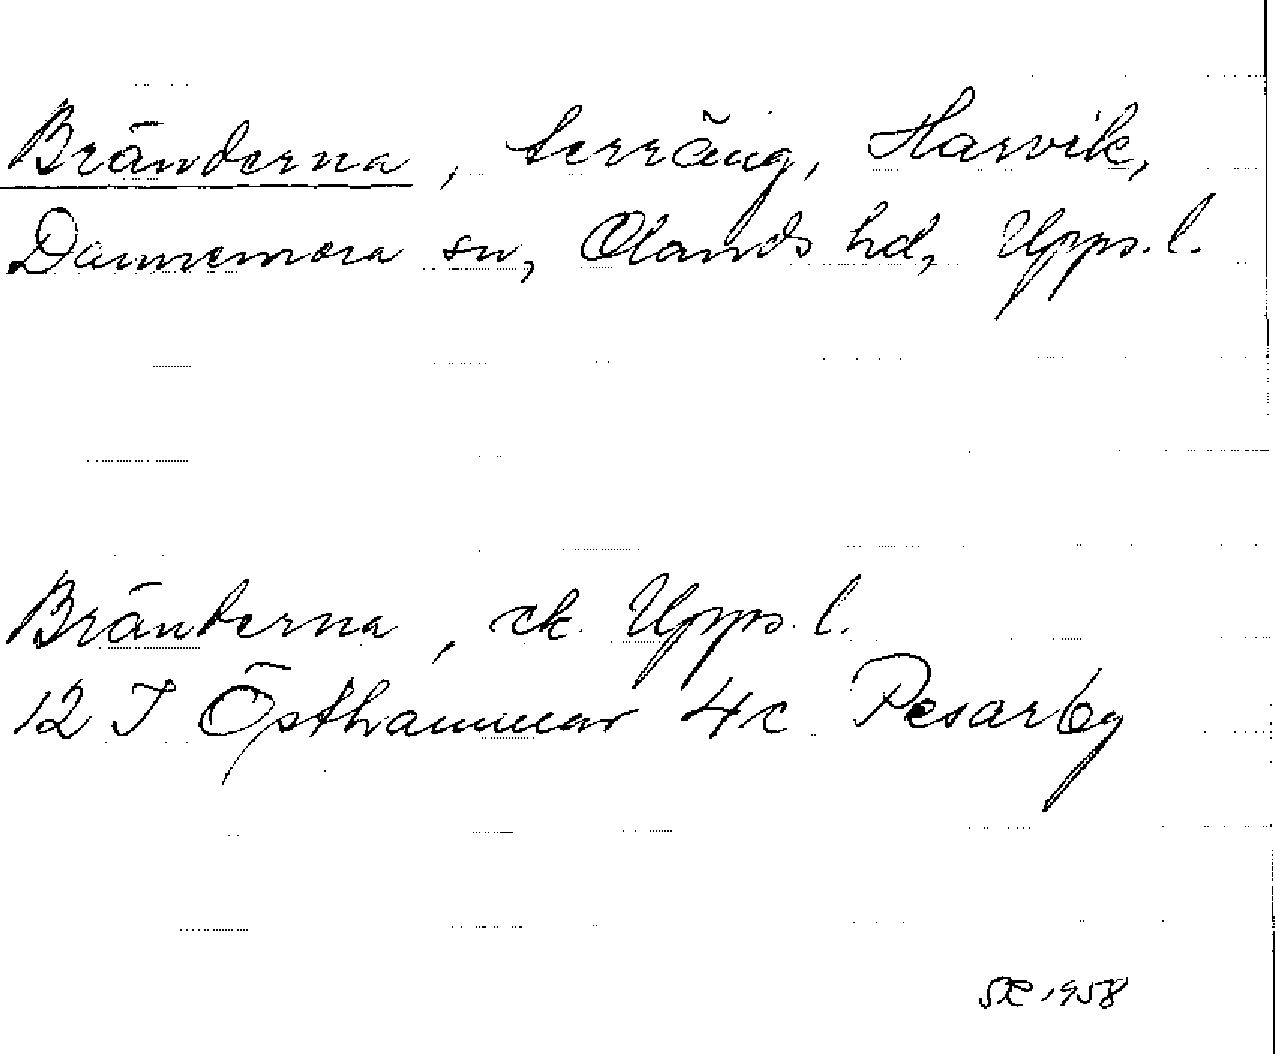 Bränderna, terräng, Harvik,
Dannemora sn, Olands hd, Upps. l.
Bränderna, ek. Upps. l.
12 I Östhammar 4c Pesarby
1958